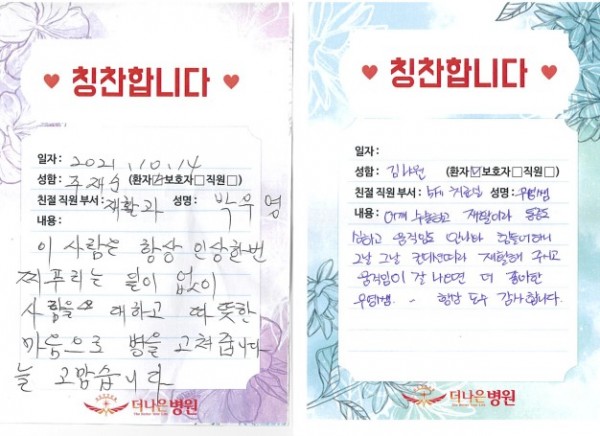 칭찬합니다
일자: 2021. 10. 14
성함: 주재순 (환자☑보호자□직원□)
친절 직원 부서: 재활과 성명: 박우영
내용:
이 사람은 항상 인상한번
찌푸리는 일이 없이
사람을 대하고 따뜻한
마음으로 병을 고쳐줍니다
늘 고맙습니다
더나은병원
칭찬합니다
일자:
성함: (환자☑보호자□직원□)
친절 직원 부서: 치료실 성명: 우영쌤
내용: 어깨 수술하고 재활이라
심하고 움직임도
그날 그날 컨디션따라 재활해 주시고
움직임이 잘 나오면 더 좋아한
우영쌤. - 항상 감사합니다.
더나은병원